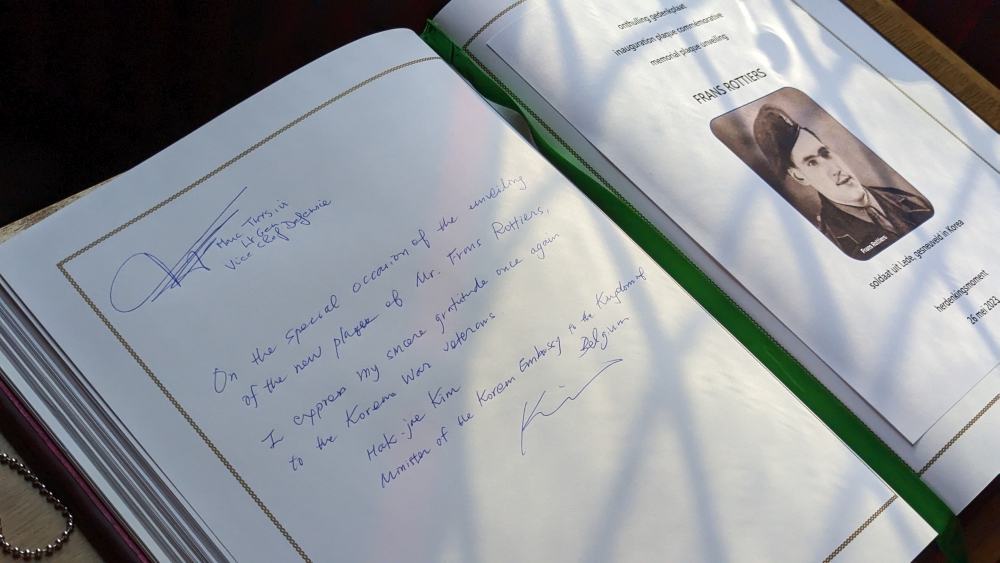 Marc Thys
Lt Gen
Vice Chef Defensie
On the special occasion of the unveiling
of the new plaque of Mr. Frans Rottiers,
I express my sincere gratitude once again
to the Korean War veterans
Hak-jae Kim
Minister of the Korean Embassy to the Kingdom of
Belgium
Kim
onthulling gedenkplaat
inauguration plaque commémorative
memorial plaque unveiling
FRANS ROTTIERS
Frans Rottiers
soldaat uit Lede, gesneuveld in Korea
herdenkingsmoment
26 mei 2023